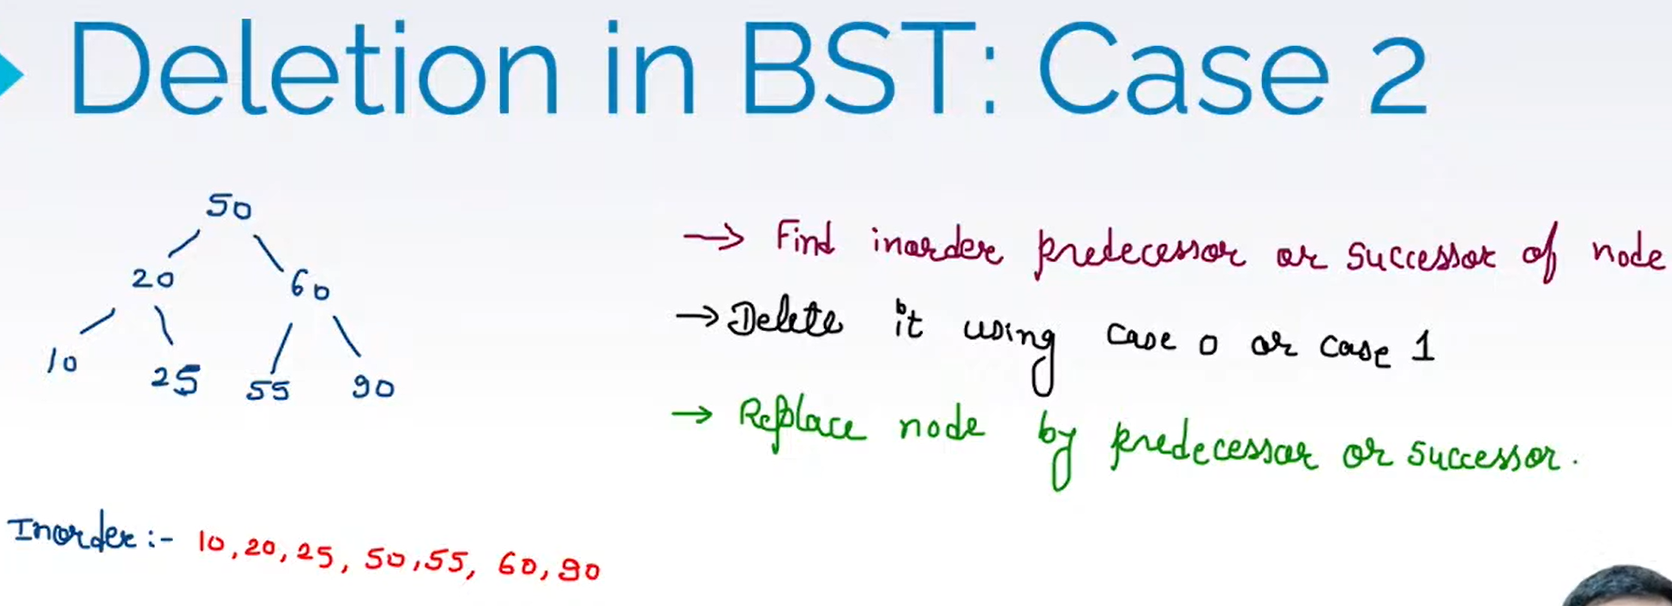 Deletion in BST: Case 2
50
20 60
10 25 55 90
→ Find inorder predecessor or successor of node
→ Delete it using case 0 or case 1
→ Replace node by predecessor or successor.
Inorder :- 10, 20, 25, 50, 55, 60, 90